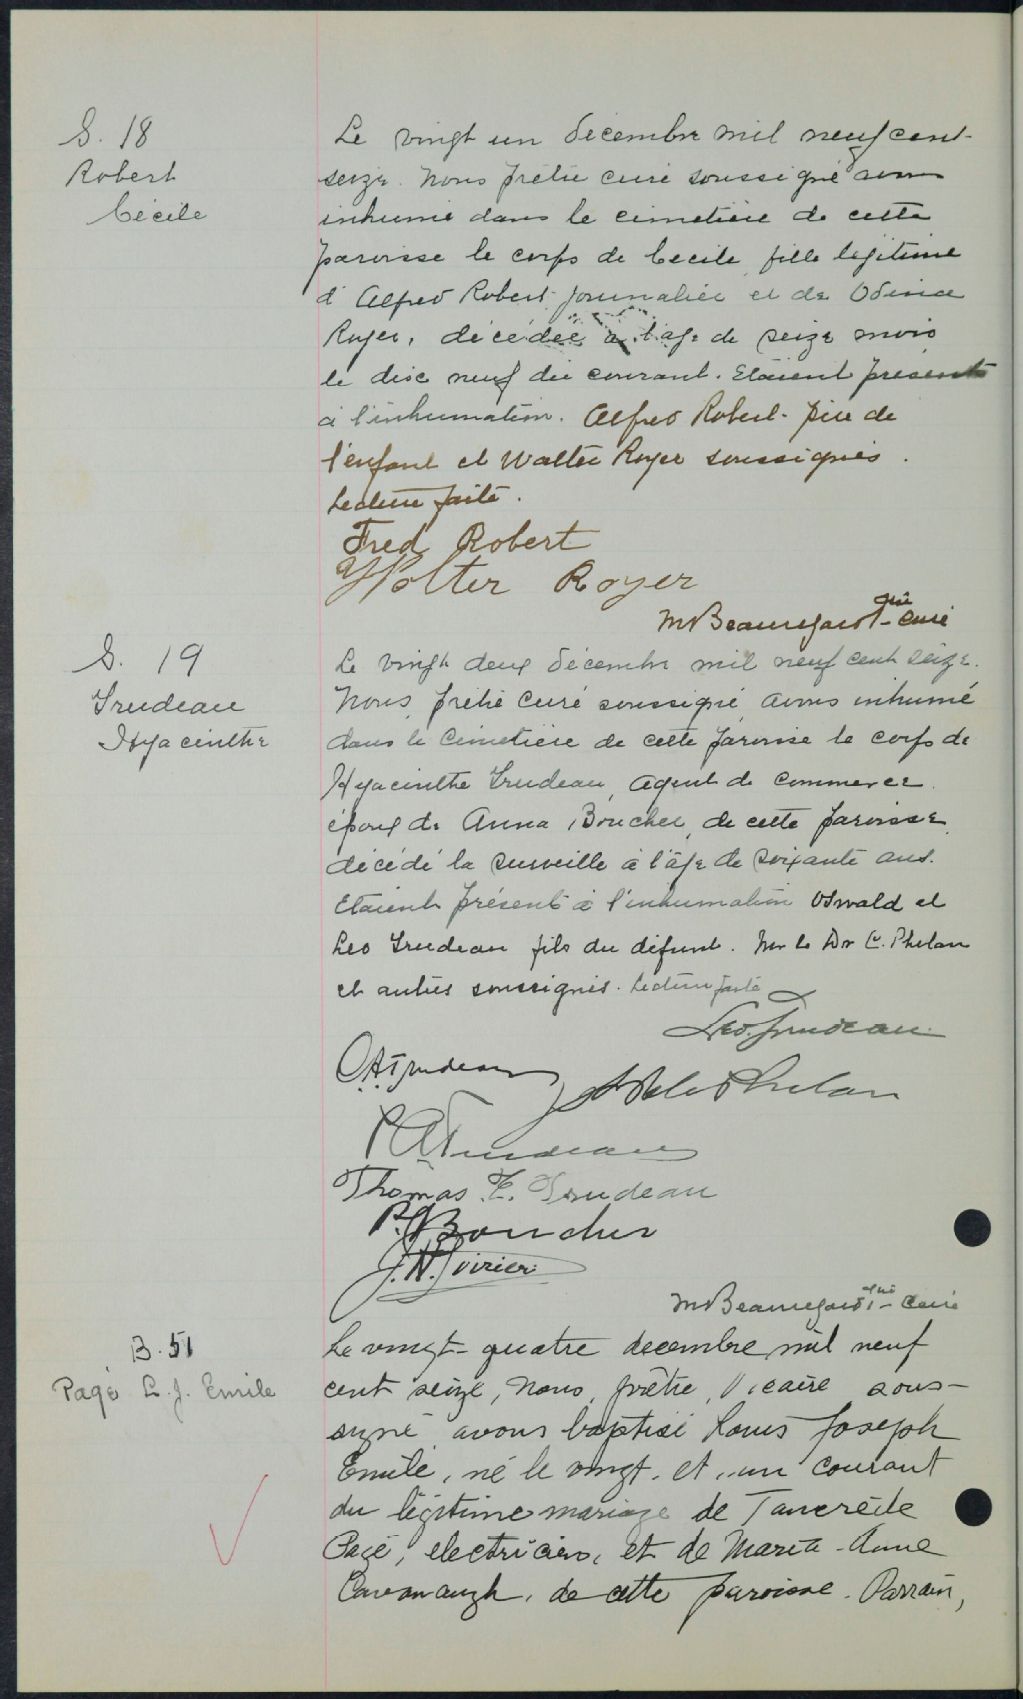 S. 18
Robert
Cécile
Le vingt un décembre mil neuf cent
seize. Nous prêtre curé soussigné avons
inhumé dans le cimetière de cette
paroisse le corps de Cecile, fille légitime
d'Alfred Robert journalier et de Odina
Royer, décédée à l'âge de seize mois
le dix neuf du courant. Etaient présents
à l'inhumation. Alfred Robert père de
l'enfant et Walter Royer soussignés.
Lecture faite.
Fred Robert
Wolter Royer
M Beauregard Ptre curé
S. 19
Trudeau
Hyacinthe
Le vingt deux décembre mil neuf cent seize.
Nous, prêtre curé soussigné avons inhumé
dans le cimetière de cette paroisse le corps de
Hyacinthe Trudeau, agent de commerce
époux de Anna Boucher, de cette paroisse
décédé la surveille à l'âge de soixante ans.
Etaient présents à l'inhumation Oswald et
Leo Trudeau fils du défunt. Mr le Dr C. Phelan
et autres soussignés. Lecture faite
Leo. Trudeau
O.A. Trudeau
Phelan
P.A. Trudeau
Thomas E. Trudeau
P. Boucher
J.N. Poirier
M Beauregard Ptre curé
B. 51
Pagé L. J. Emile
Le vingt-quatre decembre mil neuf
cent seize, nous, prêtre, vicaire sous-
signé avons baptisé Louis Joseph
Emile, né le vingt. et un courant
du légitime mariage de Tancrède
Pagé, electricien, et de Maria-Anne
Cavanaugh, de cette paroisse. Parrain,